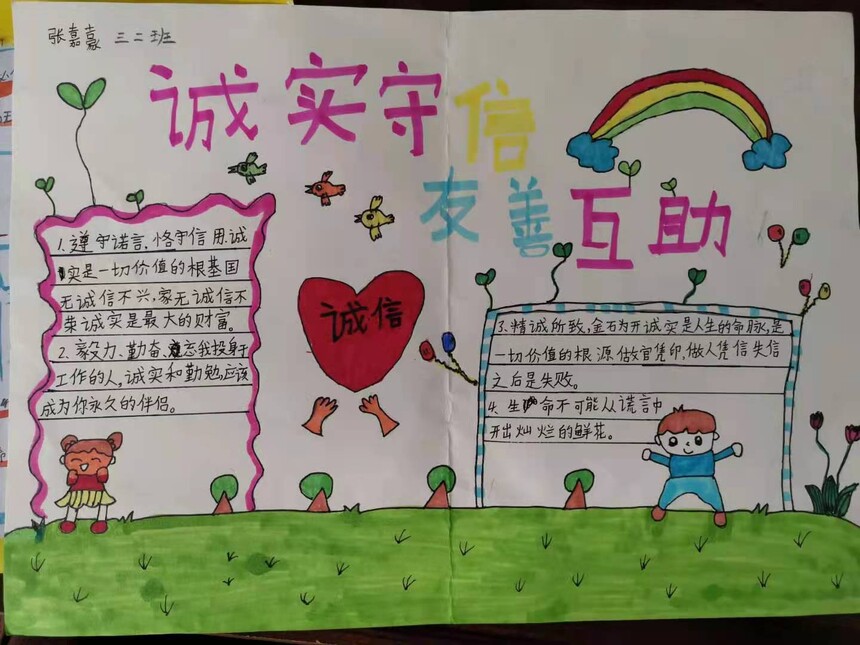 张嘉豪 三二班
诚实守信
友善互助
1.遵守诺言、恪守信用.诚
实是一切价值的根基国
无诚信不兴,家无诚信不
荣诚实是最大的财富。
2.毅力、勤奋、忘我投身于
工作的人,诚实和勤勉,应该
成为你永久的伴侣。
诚信
3.精诚所致,金石为开诚实是人生的命脉,是
一切价值的根源.做官凭印,做人凭信失信
之后是失败。
4.生命不可能从谎言中
开出灿烂的鲜花。